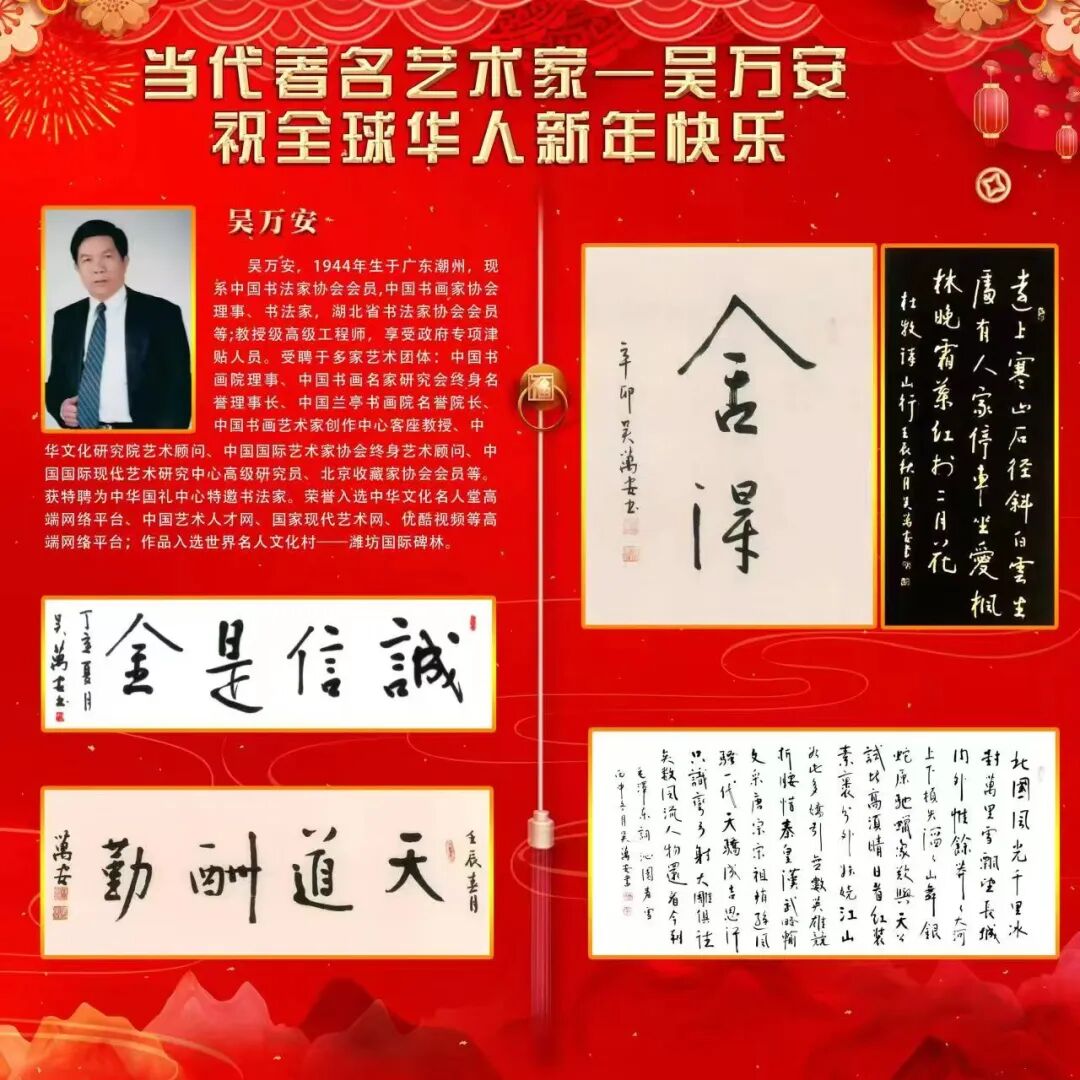 当代著名艺术家—吴万安
祝全球华人新年快乐
吴万安
吴万安，1944年生于广东潮州，现
系中国书法家协会会员,中国书画家协会
理事、书法家，湖北省书法家协会会员
等;教授级高级工程师，享受政府专项津
贴人员。受聘于多家艺术团体：中国书
画院理事、中国书画名家研究会终身名
誉理事长、中国兰亭书画院名誉院长、
中国书画艺术家创作中心客座教授、中
华文化研究院艺术顾问、中国国际艺术家协会终身艺术顾问、中
国国际现代艺术研究中心高级研究员、北京收藏家协会会员等。
获特聘为中华国礼中心特邀书法家。荣誉入选中华文化名人堂高
端网络平台、中国艺术人才网、国家现代艺术网、优酷视频等高
端网络平台；作品入选世界名人文化村——潍坊国际碑林。
誠信是金
丁亥夏月
吳萬安书
壬辰春月
天道酬勤
萬安
舍得
辛卯吳萬安书
遠上寒山石径斜白雲生
處有人家停車坐愛楓
林晚霜葉红於二月花
杜牧詩山行壬辰秋月吳萬安書
北國風光千里冰
封萬里雪飄望長城
内外惟餘莽々大河
上下頓失滔々山舞銀
蛇原馳蠟象欲與天公
試比高須晴日看红装
素裹分外妖娆江山
如此多嬌引無數英雄競
折腰惜秦皇漢武略輸
文采唐宗宋祖稍遜風
騷一代天驕成吉思汗
只識彎弓射大雕俱往
矣數風流人物還看今朝
毛澤东詞沁園春雪
丙申冬月吳萬安書